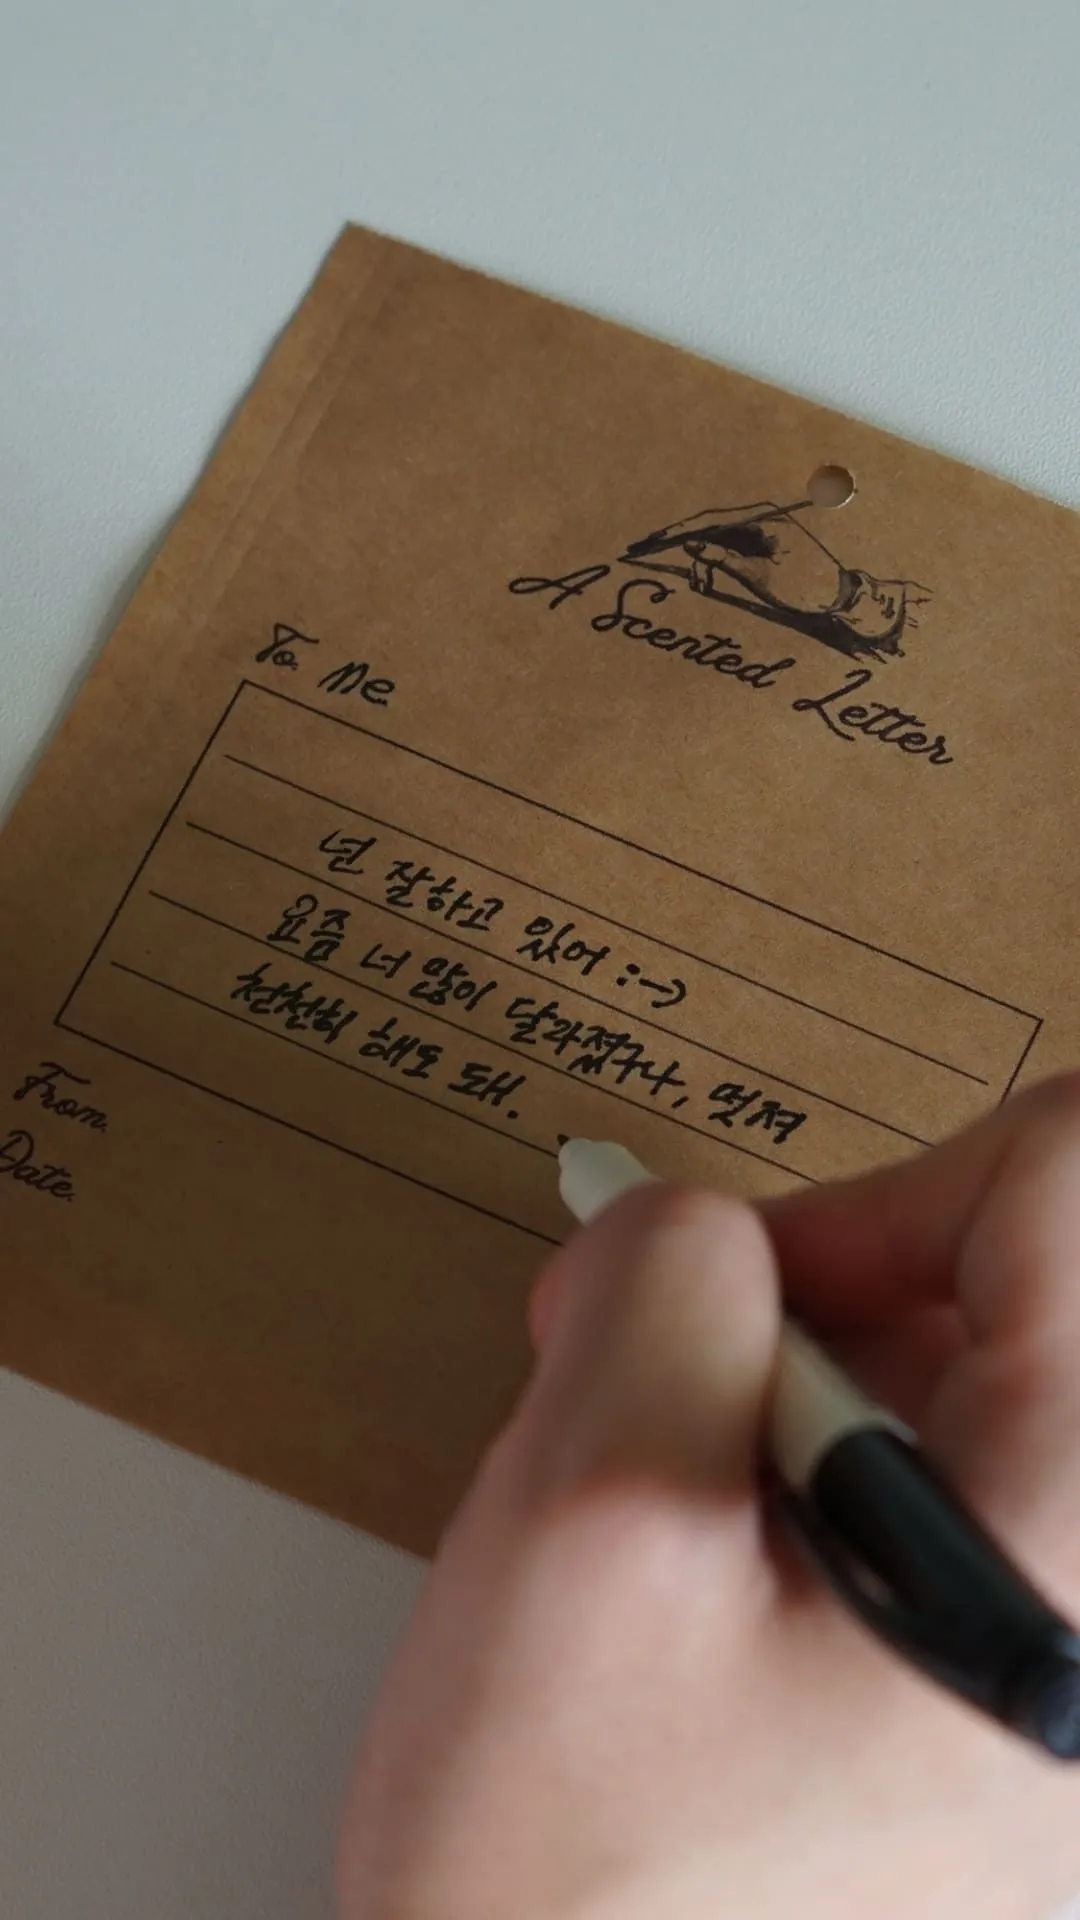 A Scented Letter
To. Me
넌 잘하고 있어 :->
요즘 너 많이 달라졌구나, 멋져
천천히 해도 돼.
From.
Date.